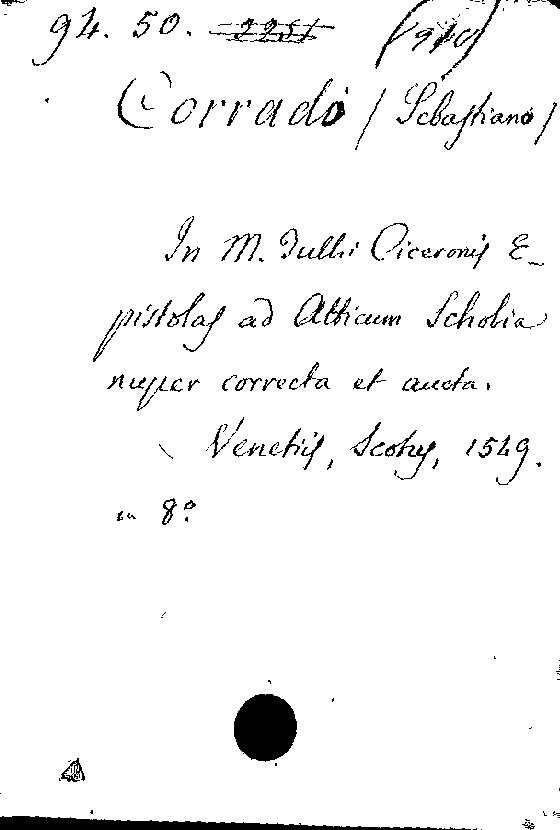 94. 50. 2251 (919)
Corrado / Sebastiano /
In M. Tullii Ciceronis E-
pistolas ad Atticum Scholia
nuper correcta et aucta.
Venetiis, Scotus, 1549.
in 8º